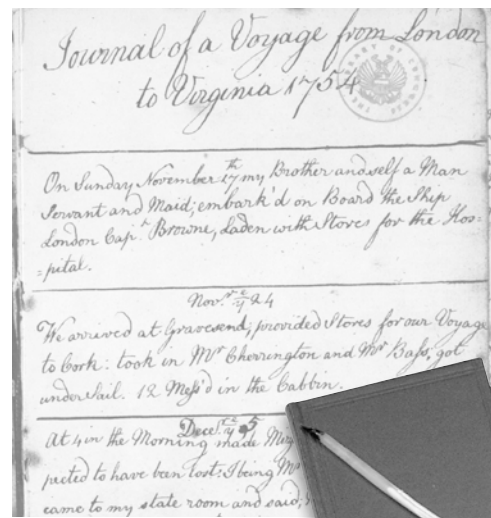 Journal of a Voyage from London
to Virginia 1754
THE LIBRARY OF CONGRESS
On Sunday November 17th my Brother and self a Man
Servant and Maid, embark'd on Board the Ship
London Capt. Browne, Laden with Stores for the Hos-
=pital.
Novr. ye 24
We arrived at Gravesend, provided Stores for our Voyage
to Cork: took in Mr Cherrington and Mr Bass, got
under Sail. 12 Mess'd in the Cabbin.
Decer. ye 5
At 4 in the Morning made
pected to have been lost: I being
came to my state room and said,